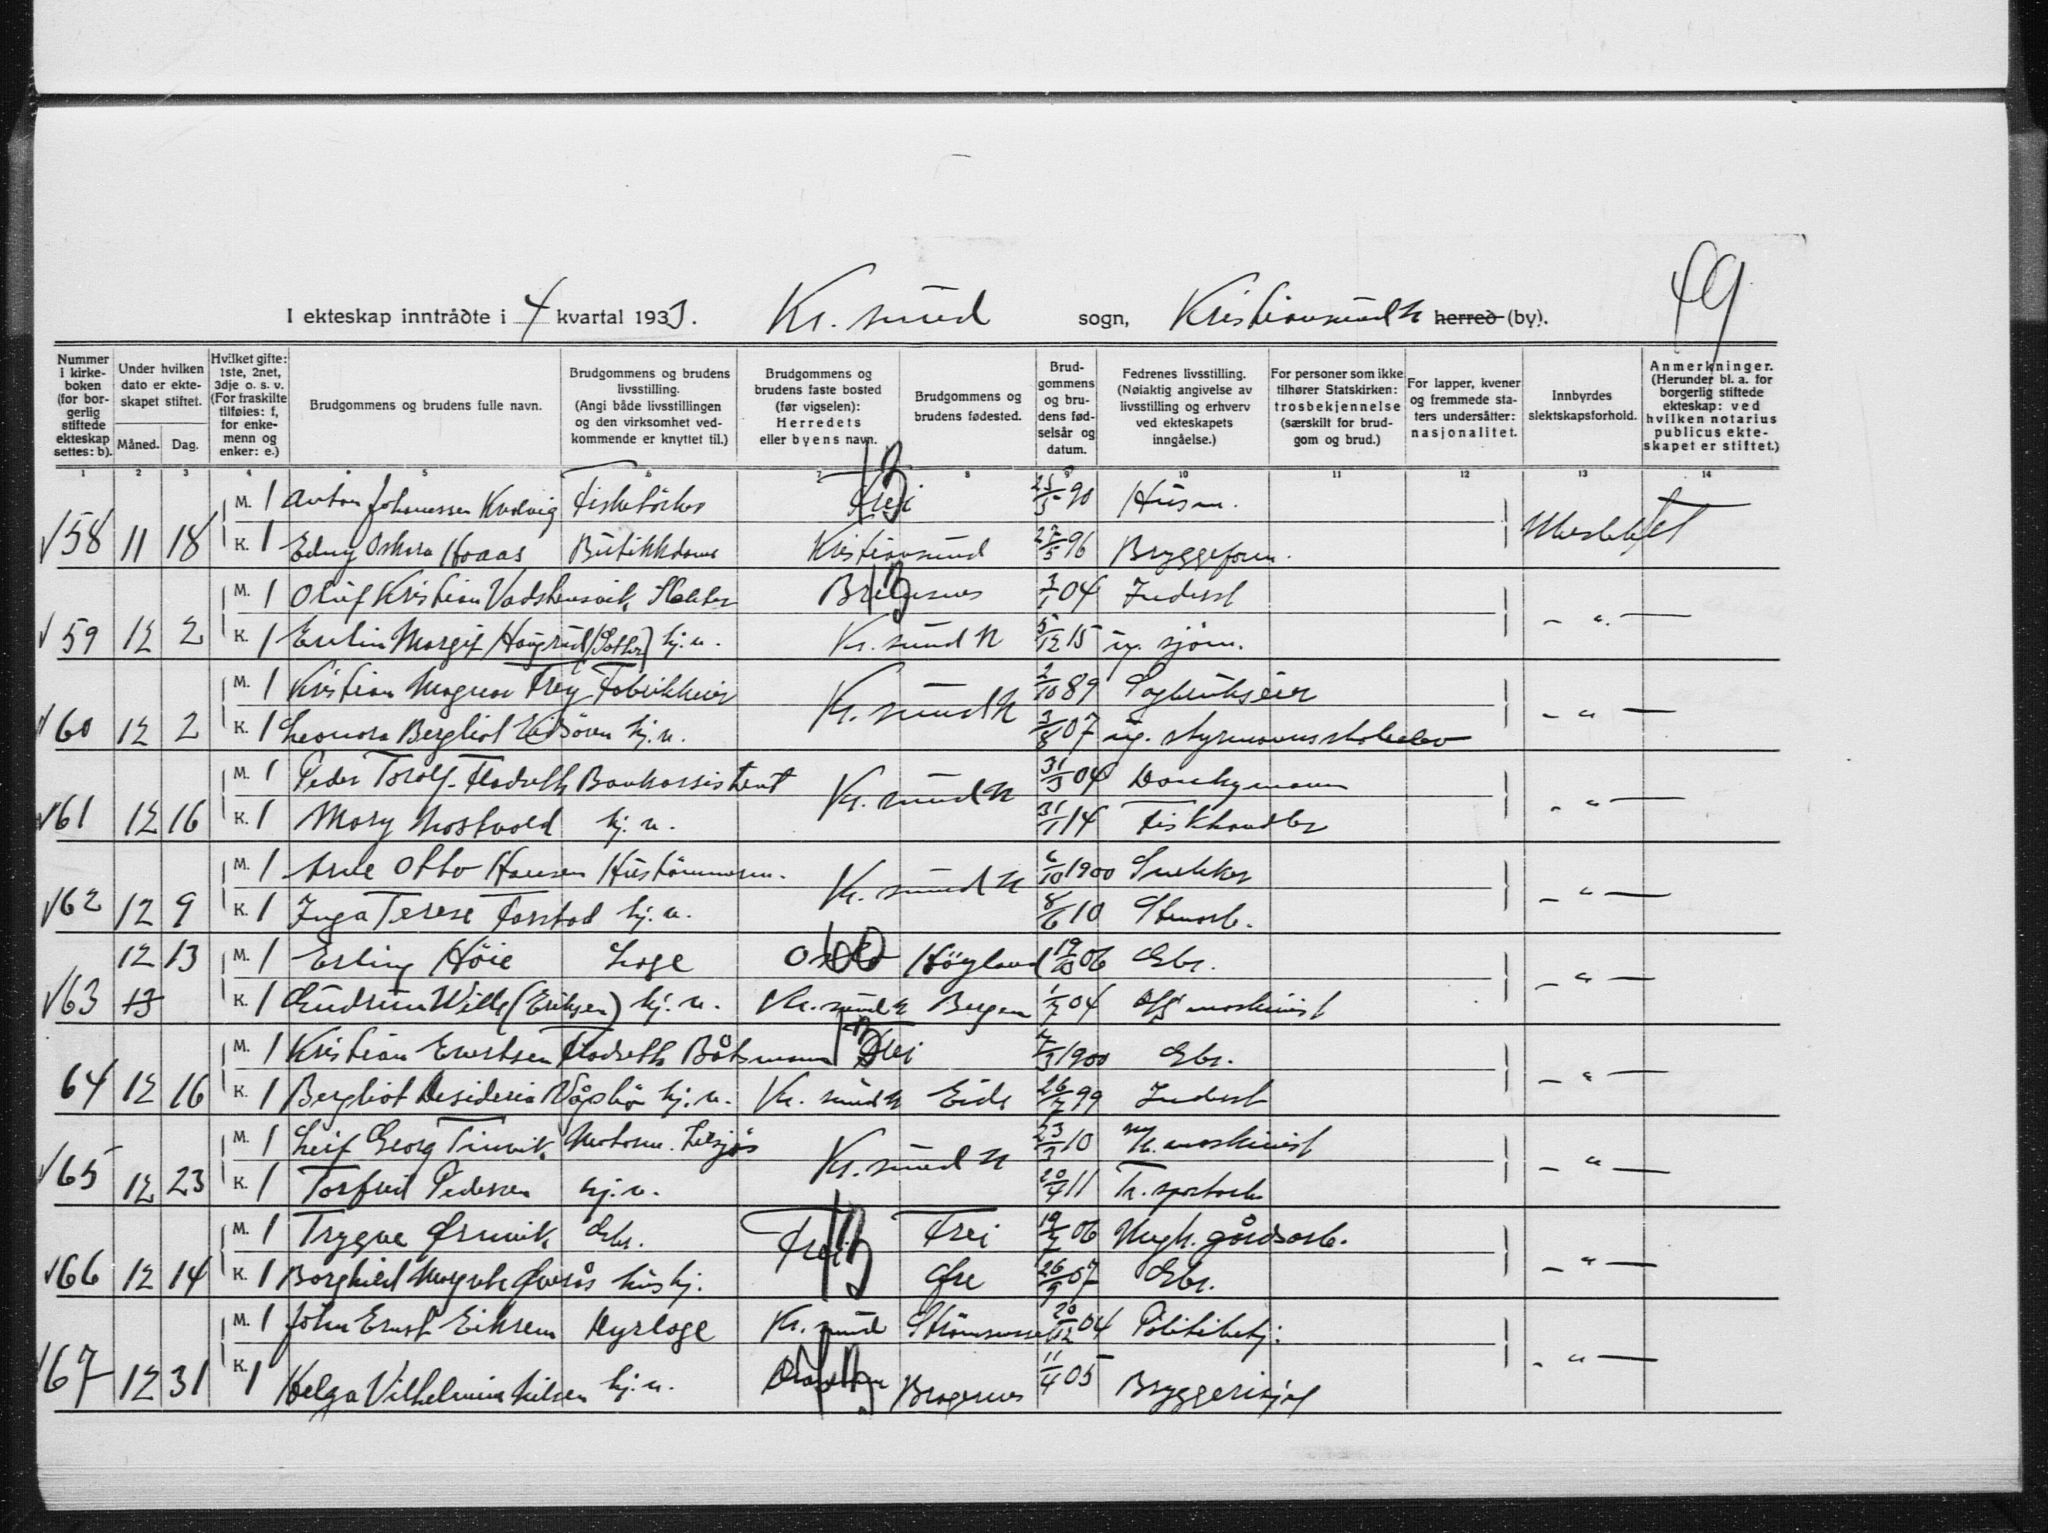 49
I ekteskap inntrådte i 4 kvartal 1933. Kr. sund sogn, Kristiansund N herred (by).
Nummer i kirkeboken (for borgerlig stiftede ekteskap settes: b). Under hvilken dato er ekteskapet stiftet. Måned. Dag. Hvilket gifte: 1ste, 2net, 3dje o. s. v. (For fraskilte tilføies: f, for enkemenn og enker: e.) Brudgommens og brudens fulle navn. Brudgommens og brudens livsstilling. (Angi både livsstillingen og den virksomhet vedkommende er knyttet til.) Brudgommens og brudens faste bosted (før vigselen): Herredets eller byens navn. Brudgommens og brudens fødested. Brudgommens og brudens fødselsår og datum. Fedrenes livsstilling. (Nøiaktig angivelse av livsstilling og erhverv ved ekteskapets inngåelse.) For personer som ikke tilhører Statskirken: trosbekjennelse (særskilt for brudgom og brud.) For lapper, kvener og fremmede staters undersåtter: nasjonalitet. Innbyrdes slektskapsforhold. Anmerkninger. (Herunder bl. a. for borgerlig stiftede ekteskap: ved hvilken notarius publicus ekteskapet er stiftet.)
1 2 3 4 5 6 7 8 9 10 11 12 13 14
M. 1 Anton Johanessen Kvalvig Fisketørker Frei 25/5 90 Husm.
58 11 18 K. 1 Edny Oskara Hoaas Butikkdame Kristiansund 27/5 96 Bryggeform. Ubeslektet
M. 1 Oluf Kristian Vadstensvik Slakter Bremsnes 3/1 04 Inderst
59 12 2 K. 1 Evelin Margit Haugrud hj. v. Kr. sund N 5/12 15 ug. sjøm. - " -
M. 1 Kristian Magnar Frey Fabrikkeier 2/10 89 Sagbrukseier
60 12 2 K. 1 Leonora Bergliot hj. v. Kr. sund N 3/8 07 ug. styrmannsskoleelev - " -
M. 1 Peder Torolf Fladseth Bankassistent 31/3 04 Donkymann
61 12 16 K. 1 Mary Mostvold hj. v. Kr. sund N 31/1 14 Fiskhandler - " -
M. 1 Arne Otto Hansen Hustømmerm. 6/10 1900 Snekker
62 12 9 K. 1 Inga Terese Forstad hj. v. Kr. sund N 8/6 10 Stenarb. - " -
12 13 M. 1 Erling Høie Læge Oslo Høyland 19/10 06 Gbr.
63 13 K. 1 Gudrun Wille (Eriksen) hj. v. Kr. sund N Bergen 1/7 04 maskinist - " -
M. 1 Kristian Evertsen Fladseth Båtsmann Frei 1900 Gbr.
64 12 16 K. 1 Bergliot Desideria Vågsbø hj. v. Kr. sund N Eide 26/7 99 Inderst - " -
M. 1 Leif Georg Tinvik Motorm. tilsjøs 23/3 10 maskinist
65 12 23 K. 1 Torfrid Pedersen hj. v. Kr. sund N 20/4 11 - " -
M. 1 Trygve Ørnvik Gbr. Frei Frei 19/7 06 gårdsarb.
66 12 14 K. 1 Borghild Øverås hushj. Øre 26/9 07 Gbr. - " -
M. 1 John Ernst Eiksem Dyrlæge Kr. sund 20/12 04 Politibetj.
67 12 31 K. 1 Helga Vilhelmine Nilsen hj. v. Bragernes 11/4 05 - " -